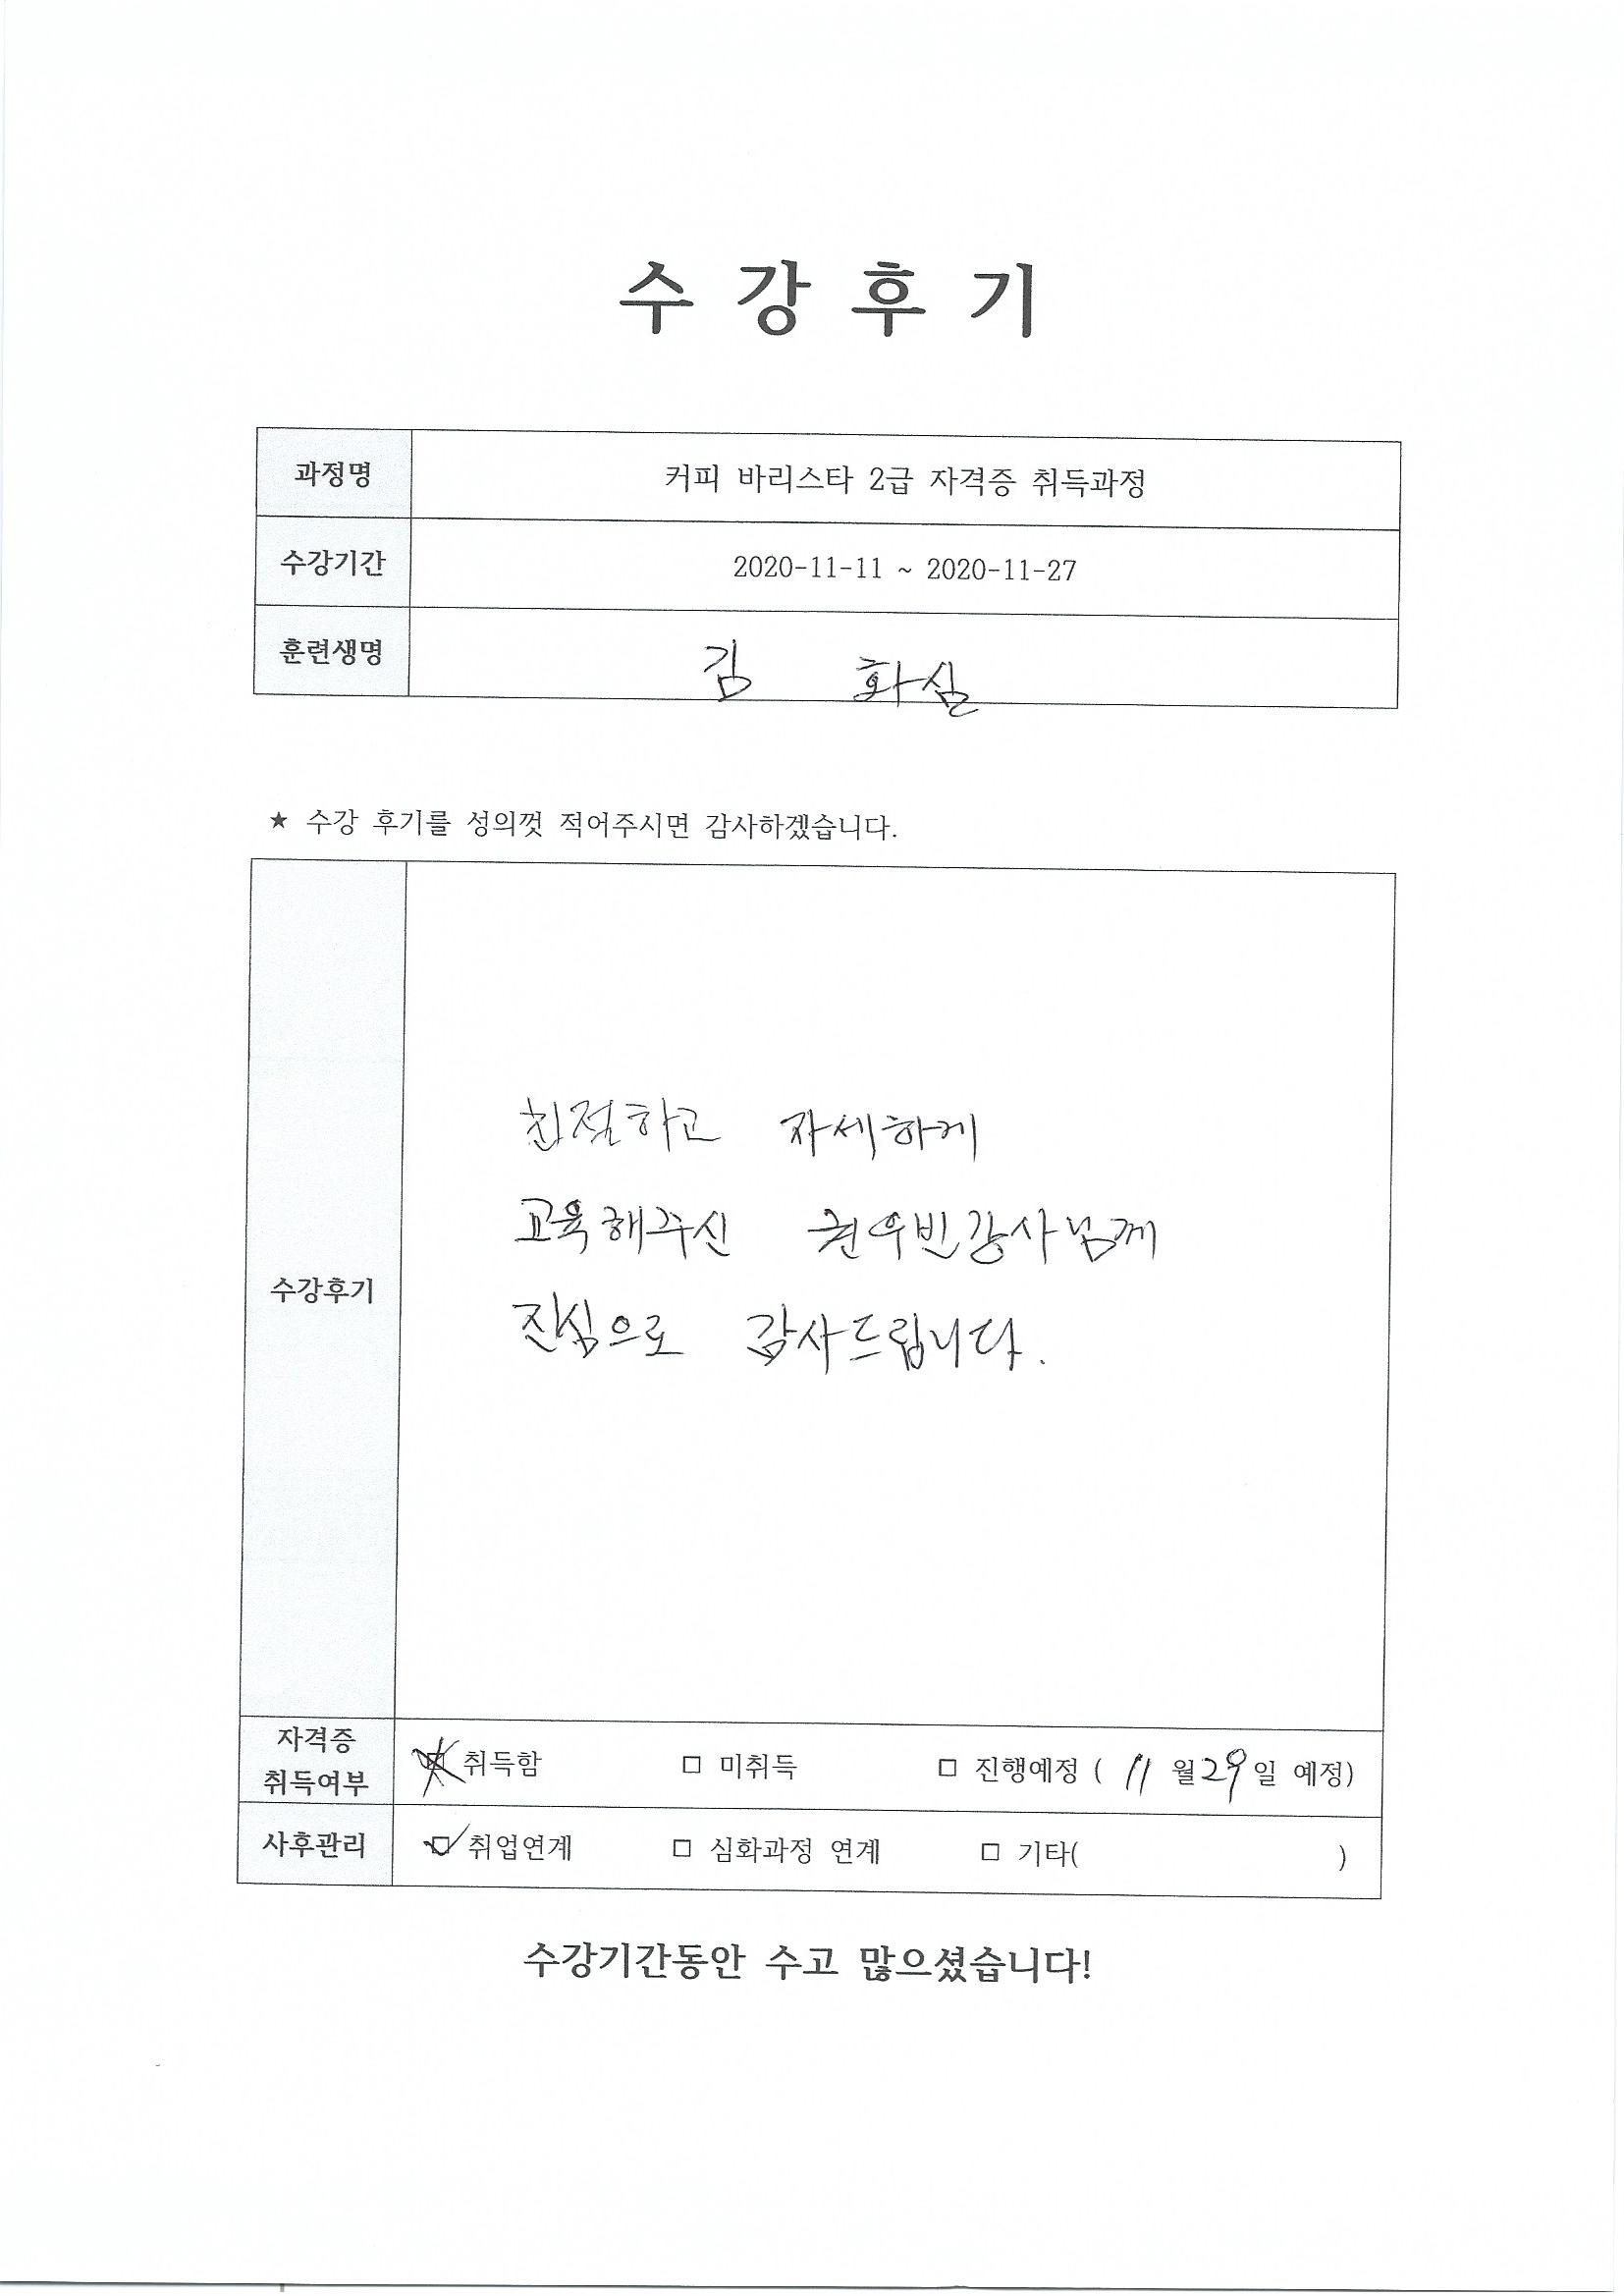 수 강 후 기
과정명 커피 바리스타 2급 자격증 취득과정
수강기간 2020-11-11 ~ 2020-11-27
훈련생명 김 화실
★ 수강 후기를 성의껏 적어주시면 감사하겠습니다.
친절하고 자세하게
교육해주신 권우빈강사님께
수강후기
진심으로 감사드립니다.
자격증
취득여부 □ 취득함 □ 미취득 □ 진행예정 ( 11 월 29 일 예정)
사후관리 □ 취업연계 □ 심화과정 연계 □ 기타( )
수강기간동안 수고 많으셨습니다!